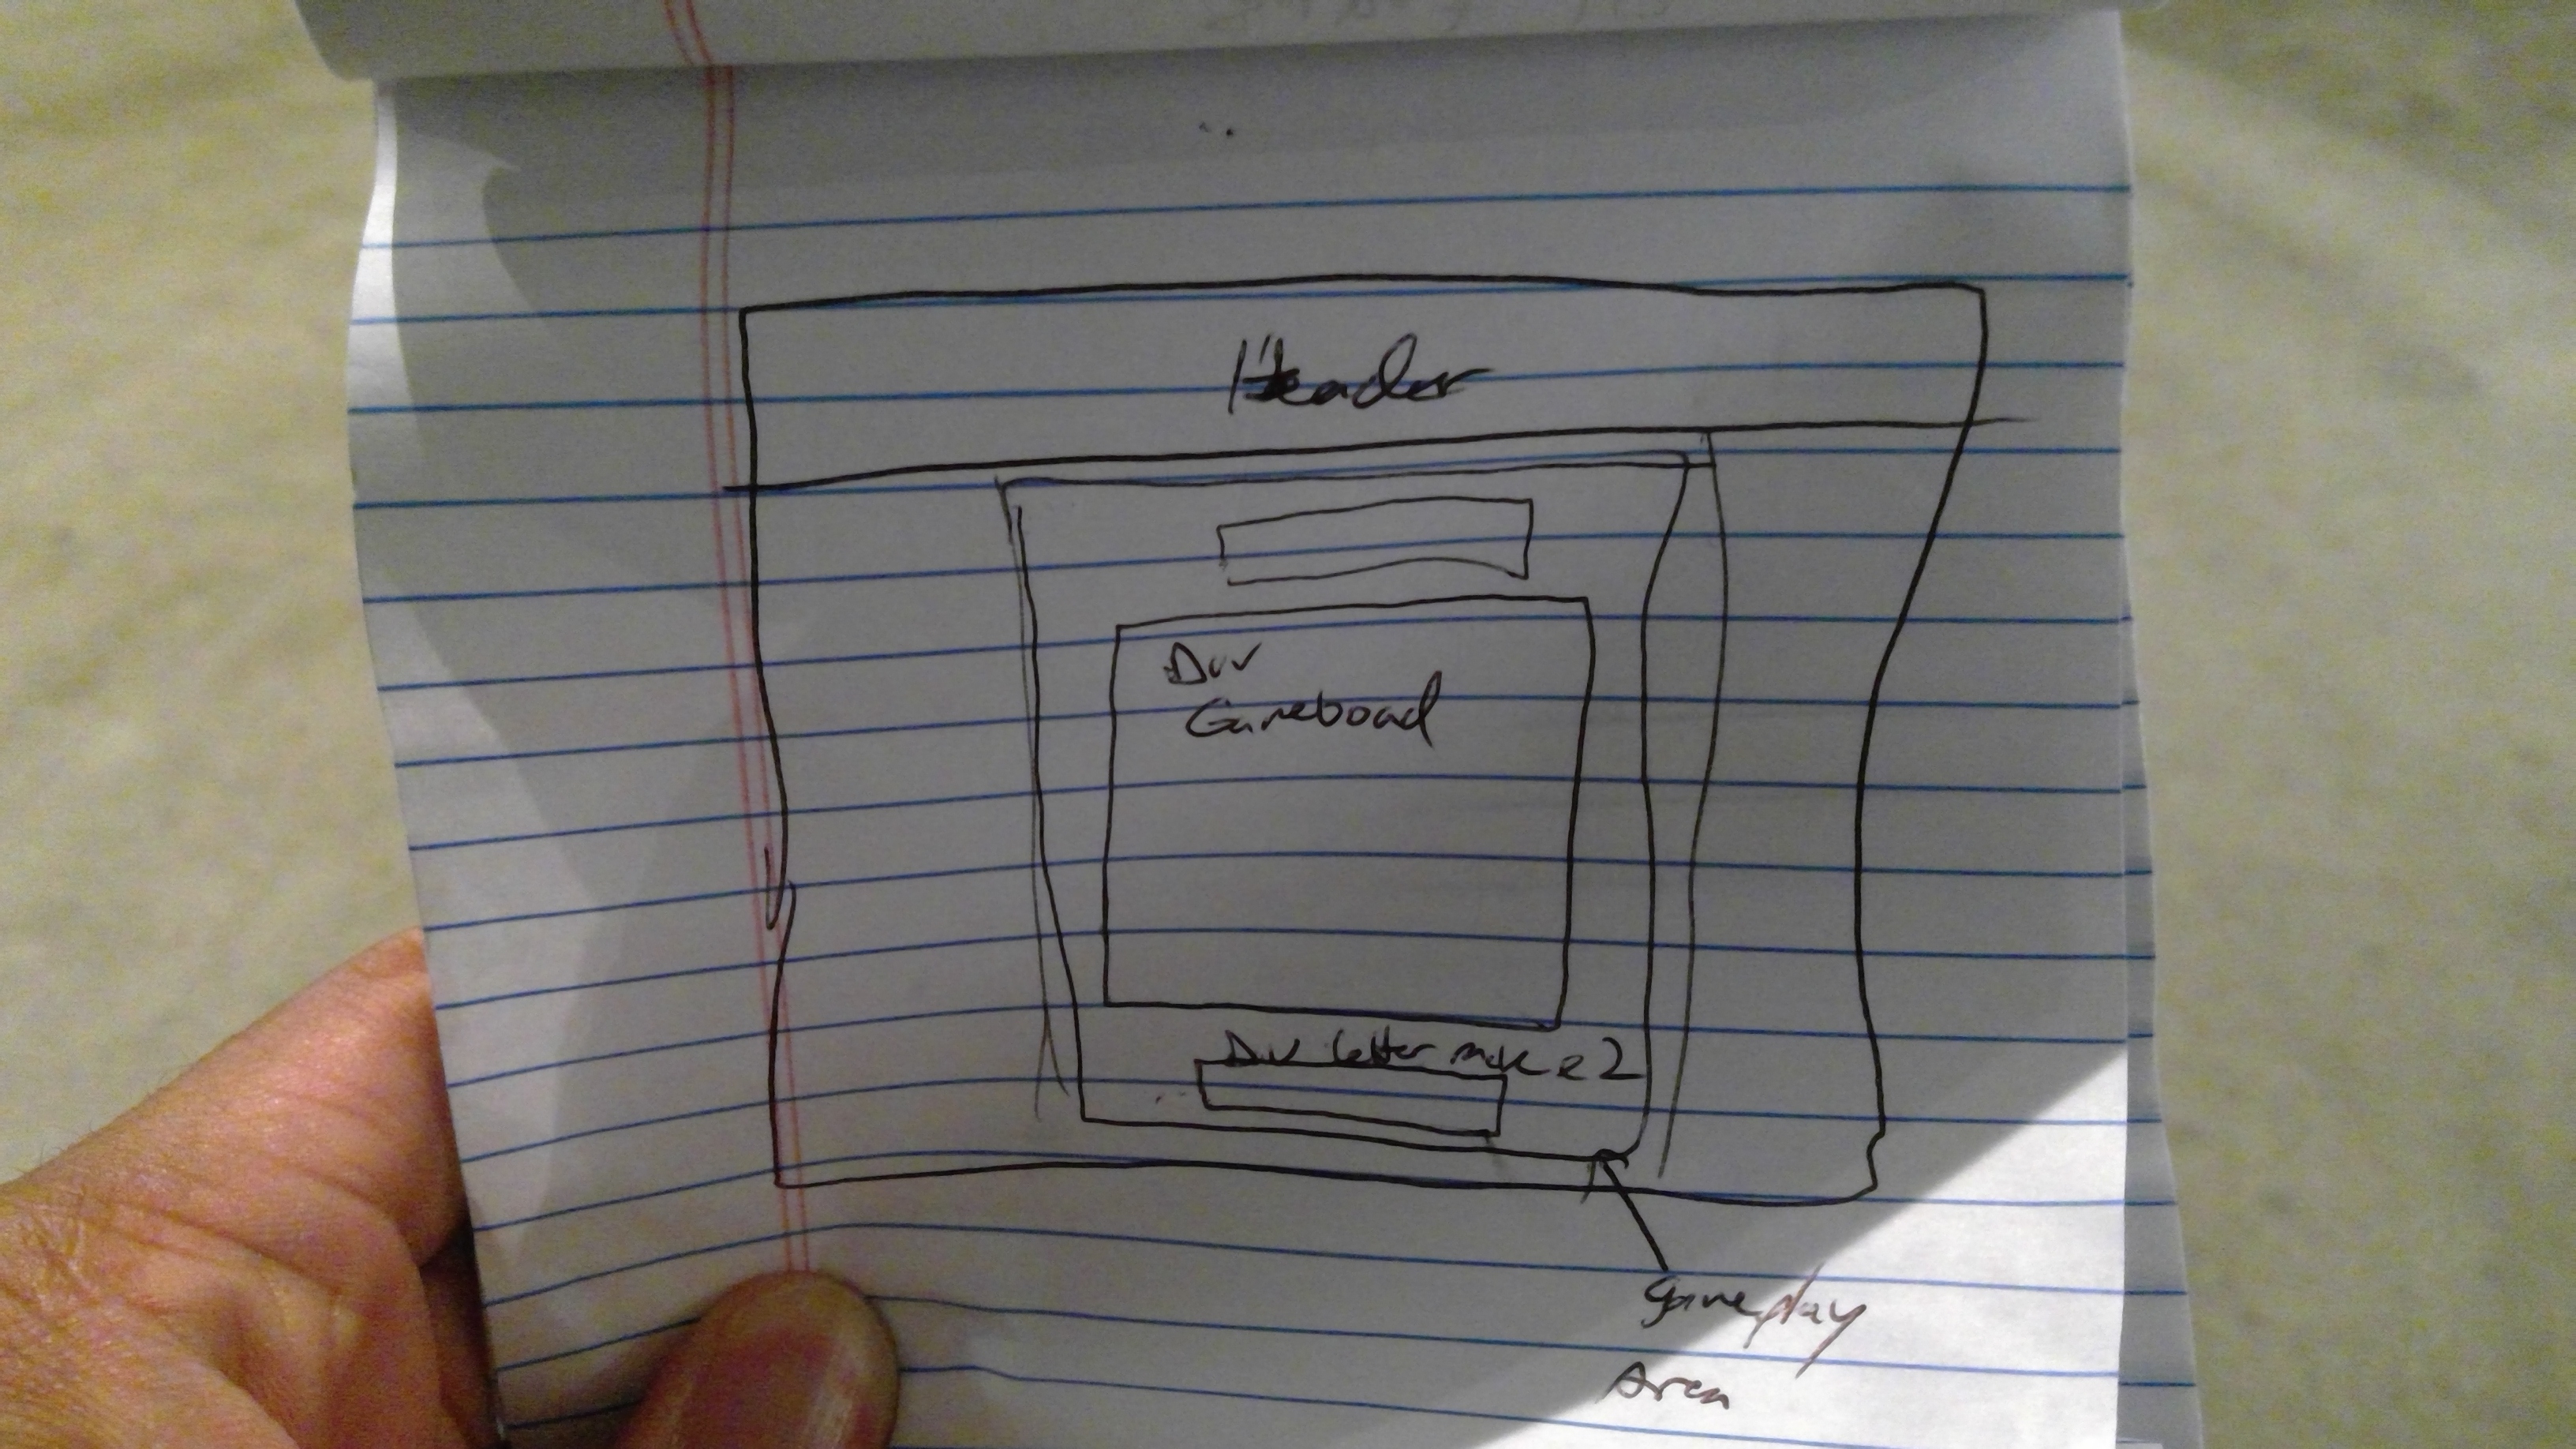 Header
Div
Gameboard
Div letter
Gameplay
Area